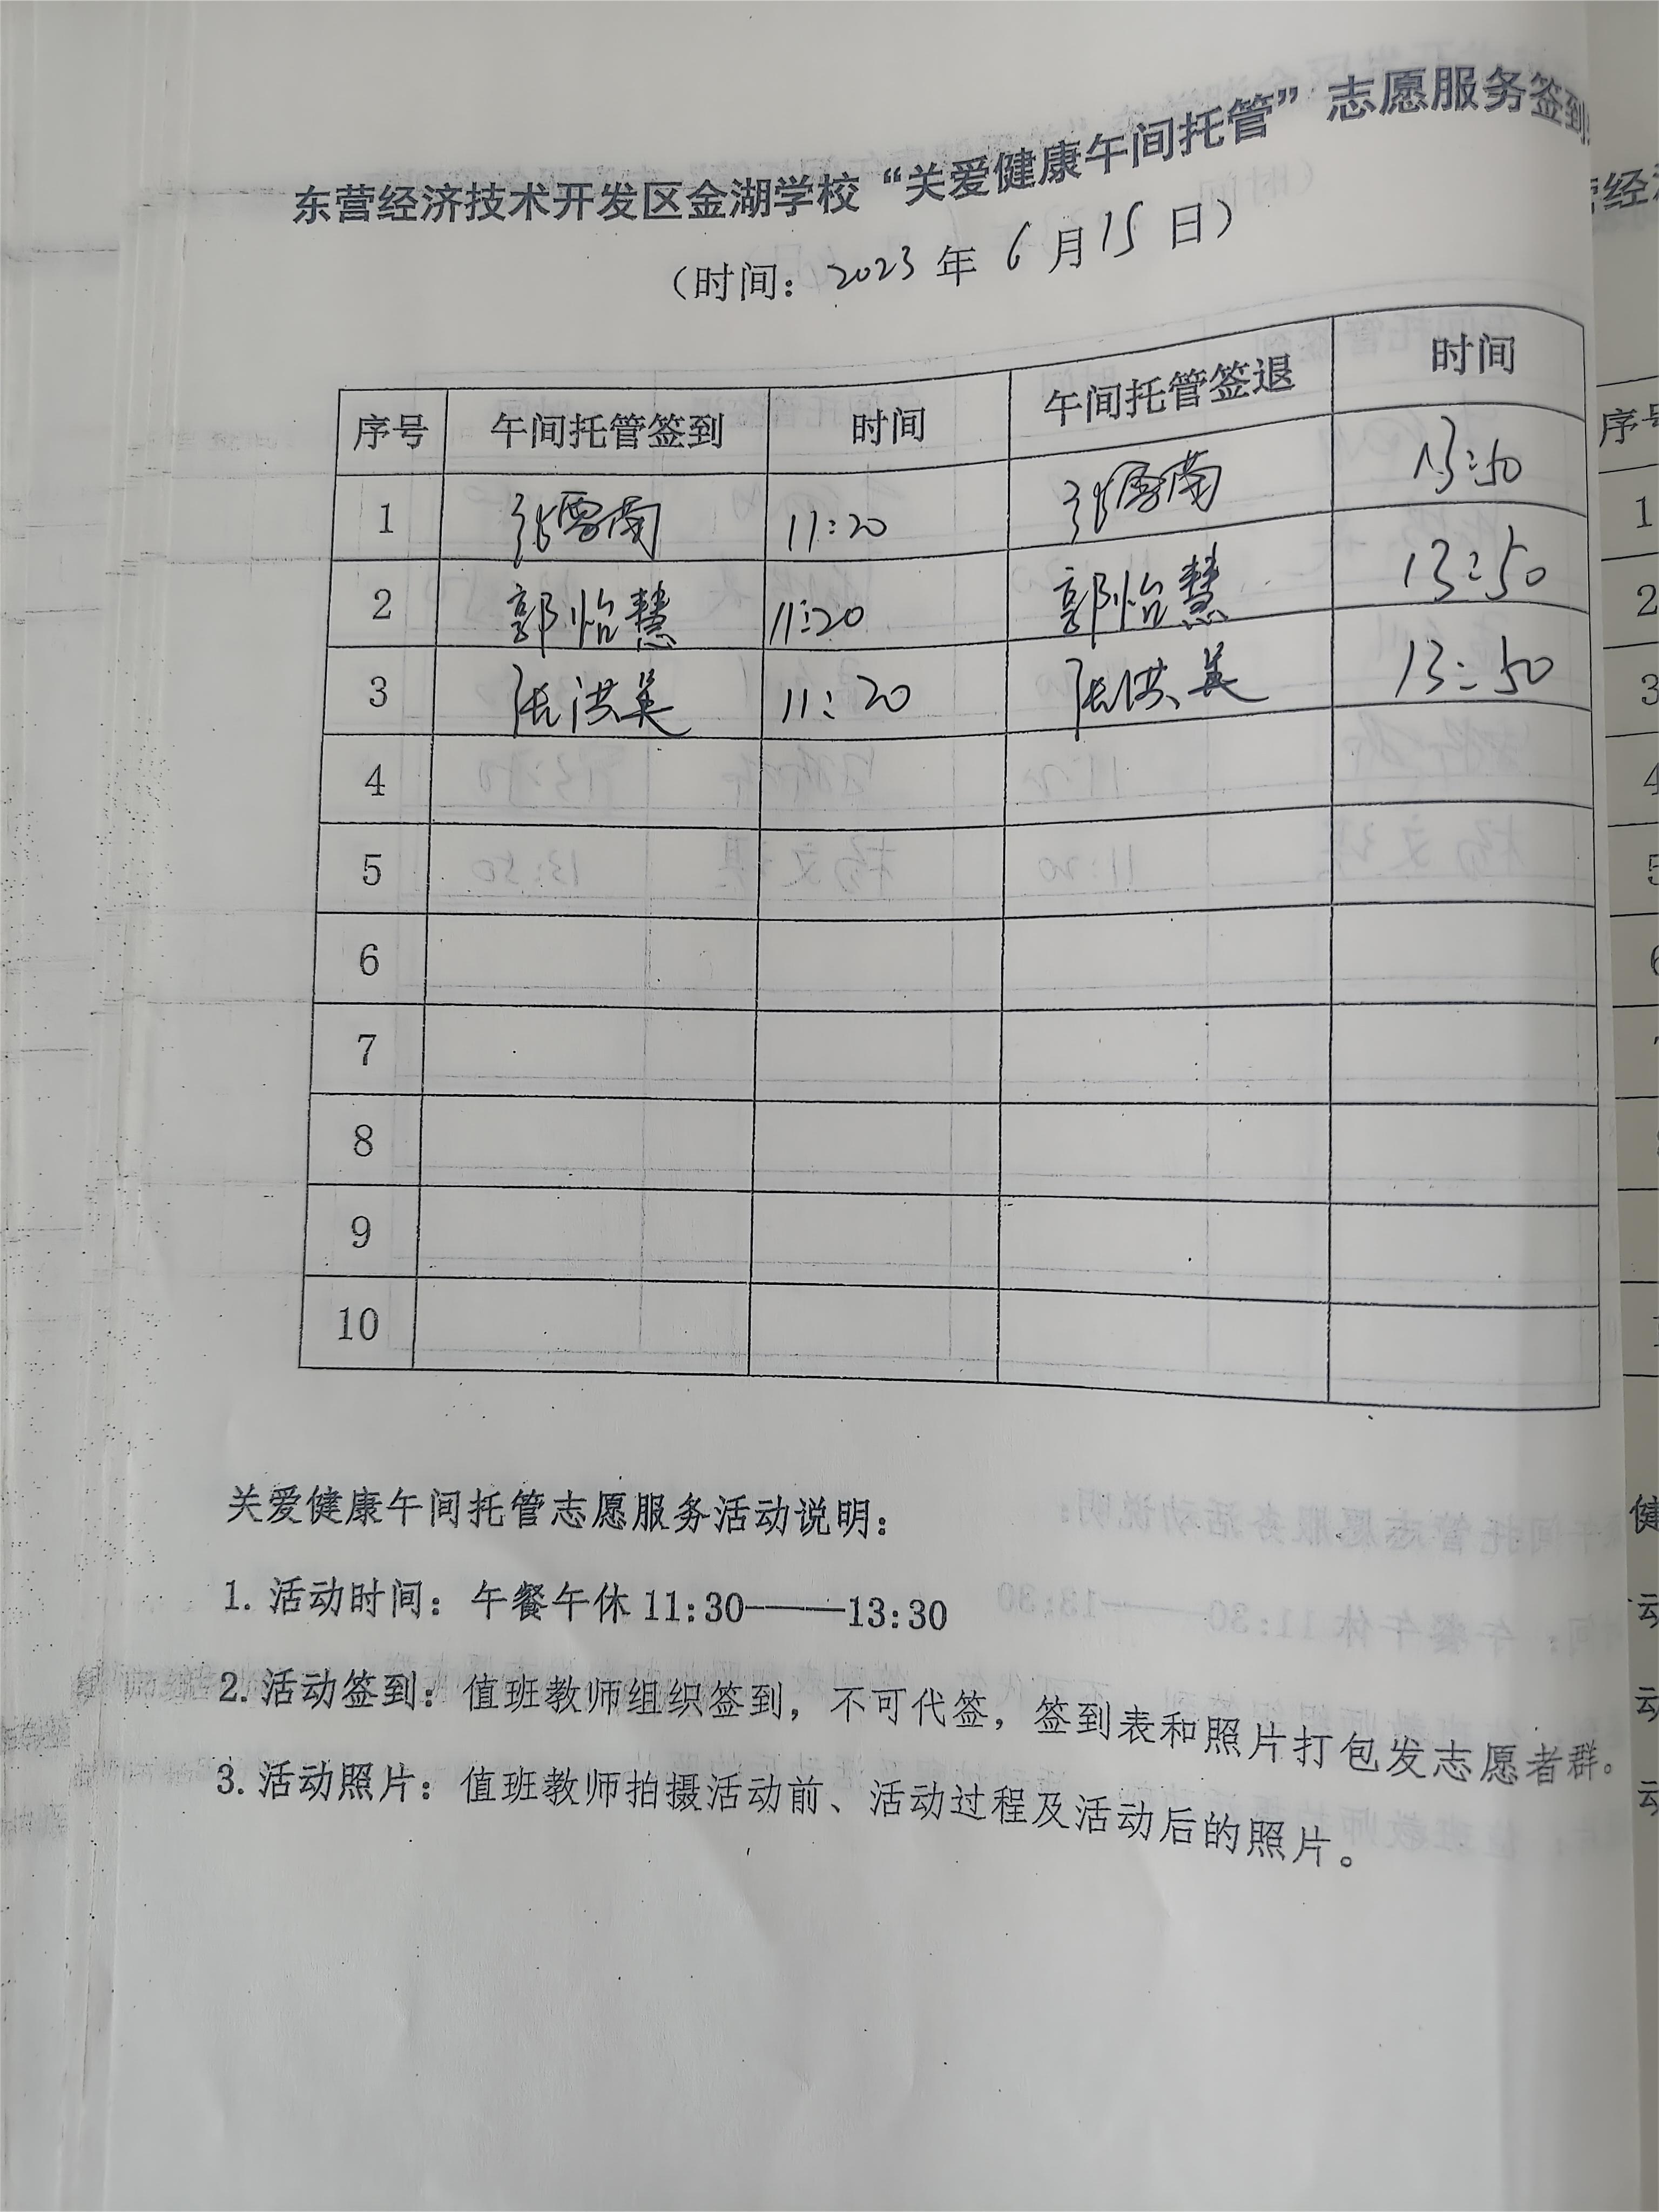 东营经济技术开发区金湖学校“关爱健康午间托管”志愿服务签到
（时间：2023年6月15日）
序号 午间托管签到 时间 午间托管签退 时间
1 张雪南 11:20 张雪南 13:50
2 郭怡慧 11:20 郭怡慧 13:50
3 张洪美 11:20 张洪美 13:50
4
5
6
7
8
9
10
关爱健康午间托管志愿服务活动说明：
1. 活动时间：午餐午休 11:30———13:30
2. 活动签到：值班教师组织签到，不可代签，签到表和照片打包发志愿者群。
3. 活动照片：值班教师拍摄活动前、活动过程及活动后的照片。
营经济
序号
1
2
3
4
5
6
健